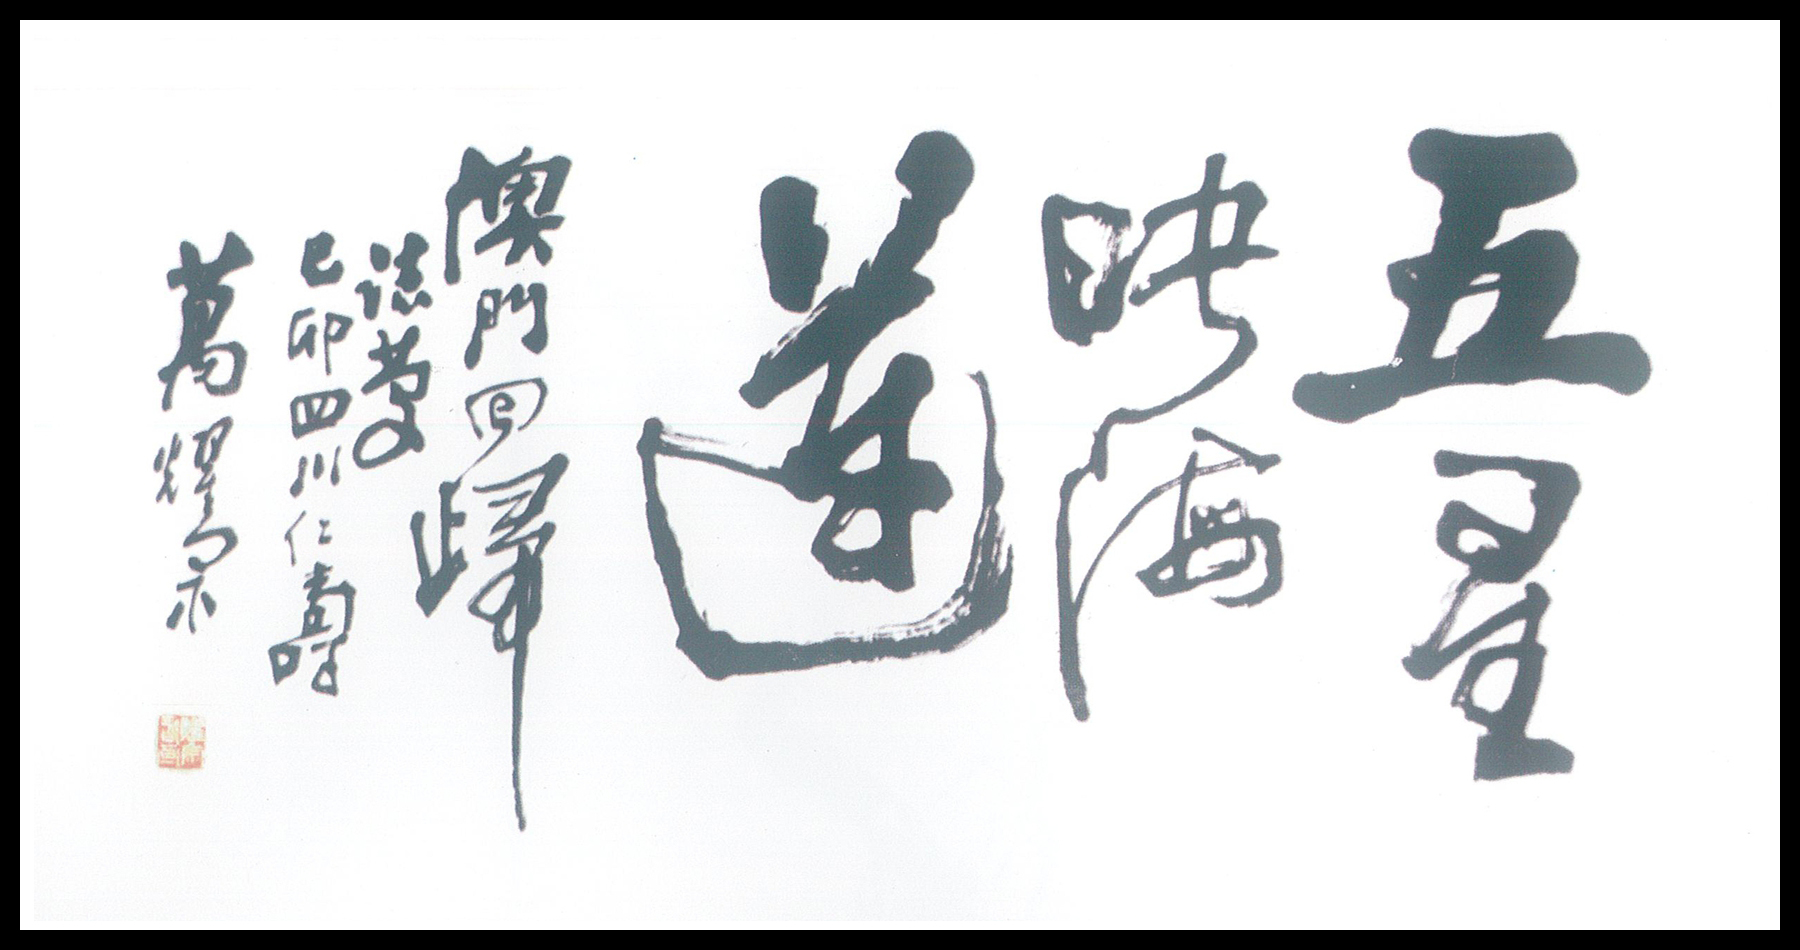 五星
映海
蓮
澳門回歸
誌慶
己卯四川仁壽
萬耀宗